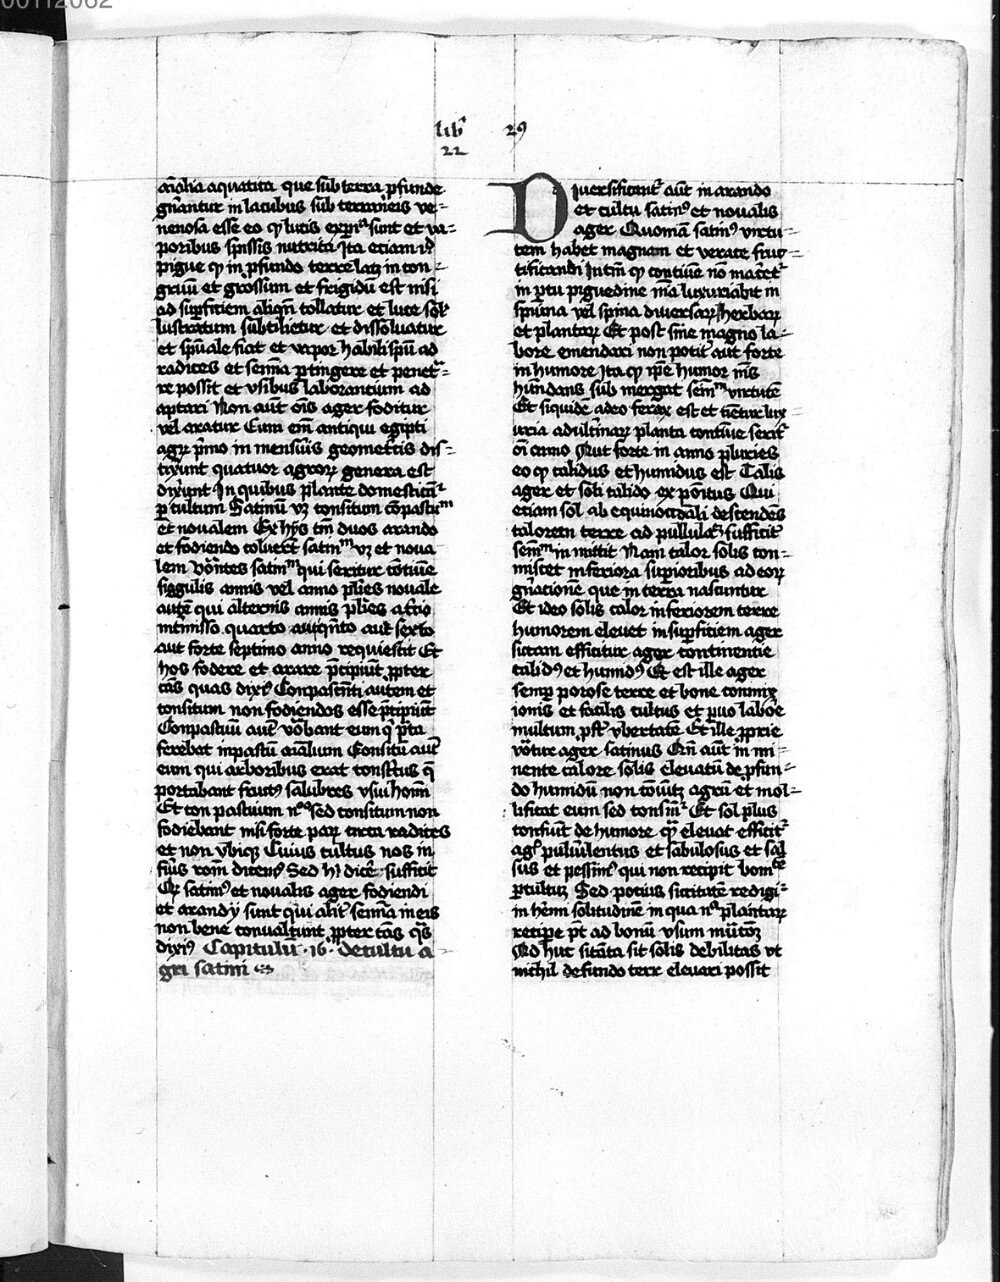 00112062
lib' 29
22
aīalia aquatica que sub terra ꝓfunde
gn̄antur in lacubus sub terraneis ve-
nenosa esse eo ꝙ lucis expn̄a sunt et va-
poribus spissis nutrita Ita etiam
pigue ꝙ in ꝓfundo terre latꝫ in con-
gruū et grossum et frigidū est nisi
ad suꝑficiem aliqn̄ tollatur et luce sol'
lustratum subtilietur et dissoluatur
et spūale fiat et vapor habilis spū ad
radices et semīa ꝑtingere et penet-
re possit et vsibus laborantium ad
aptari Non aūt oīs ager foditur
vel aratur Cum em̄ antiqui egipti
agꝝ pͥmo in mensuris geometricis dis-
tixūnt quatuor agroꝝ genera est
dixūnt In quibus plante domesticāt'
ꝑ cultum Satiuū vꝫ consitum cōpascuuͫ
et noualem Ex hijs tm̄ duos arando
et fodiendo coluerūt satiuuͫ vꝫ et noua
lem vocātes satiuuͫ qui seritur cōtinue
siggulis annis vel anno pl'ies nouale
autē qui alternis annis pl'ies a tercio
intermisso quarto aut qͥnto aut sexto
aut forte septimo anno requiescit Et
hos fodere et arare p̄cipiūt ꝓpter
cās quas dixiꝰ Conpascūti autem et
consitum non fodiendos esse p̄cipiūt
Conpascuū aut' vocabant eum qͥ pͣta
ferebat in pastū aīalium Consitū aut'
eum qui arboribus erat consitus q̄
portabant fructꝰ salubres vsui homī
Et conpascuum nͦ sed consitum non
fodiebant nisi forte parꝝ circa radices
et non vbiqꝫ Cuius cultus nos in
fͥus rōnē dicemꝰ Sed hͥ dice' sufficit
Qꝛ satiuꝰ et noualis ager fodiendi
et arandi sunt qui alit' semīa in eis
non bene conualescunt ꝓpter cās qͣs
dixiꝰ Capitulū ·16· de cultu a
gri satiui
Diuersificantͬ aūt in arando
et cultu satiuꝰ et noualis
ager Quoniam satiuꝰ virtu-
tem habet magnam et vexate fruc-
tificandi Intm̄ ꝙ continue nō macret'
in ꝑtu piguedine īmo luxuriabit in
spinina vel spina diuersaꝝ herbaꝝ
et plantaꝝ Et post sine magno la-
bore emendari non poterit aut forte
in humore Ita ꝙ ip̄e humor nīs
hūndans sub mergat semīuͫ virtutē
Et siquidē adeo ferax est et tenetͬ lux
uria ad vltimaꝝ planta continue serit'
oī anno Aut forte in anno pluries
eo ꝙ calidus et humidus est Talis
ager et soli calido ex pōitus Qui
etiam sol ab equinoctiali descendēs
calorem terre ad pullulacōem sufficiētē
semīuͫ in mittit Nam calor solis con-
miscet inferiora suꝑioribus ad eoꝝ
gn̄acionē que in terra nascuntur
Et ideo solis calor inferiorem terre
humorem eleuet in suꝑficiem ager
siccam efficitur ager continentie
calidꝰ et humidꝰ Et est ille ager
semꝑ porose terre et bone conmix
ionis et facilis cultus et paruo labōe
multum pͣst' vbertatē Et ille ꝓprie
vōtur ager satiuus Qn̄ aūt in mi-
nente calore solis eleuatū de ꝓfun-
do humidū non conuicꝫ agrū et mol-
lificat eum sed consumͥ' Et sol plus
consūit de humore ꝙ eleuat efficit'
agͬ puluulentus et sabulosus et sal
sus et pessimꝰ qui non recipit bonitatē
ꝑ cultuꝫ Sed potius siccitate redigi-
in heremi solitudinē in qua nͣ plantaꝝ
recipe pōt ad bonū vsum nūtroꝫ
Ad huc sitata sit solis debilitas vt
nichil de fundo terre eleuari possit